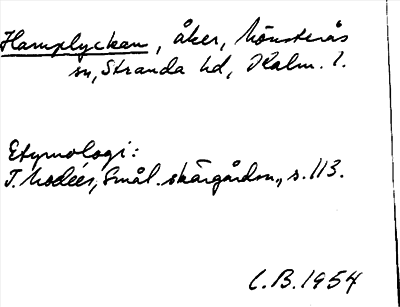 Hamplyckan, åker, Mönsterås
sn, Stranda hd, Kalm. l.
Etymologi:
T. Modéer, Smål. skärgårdsn., s. 113.
C.B. 1954